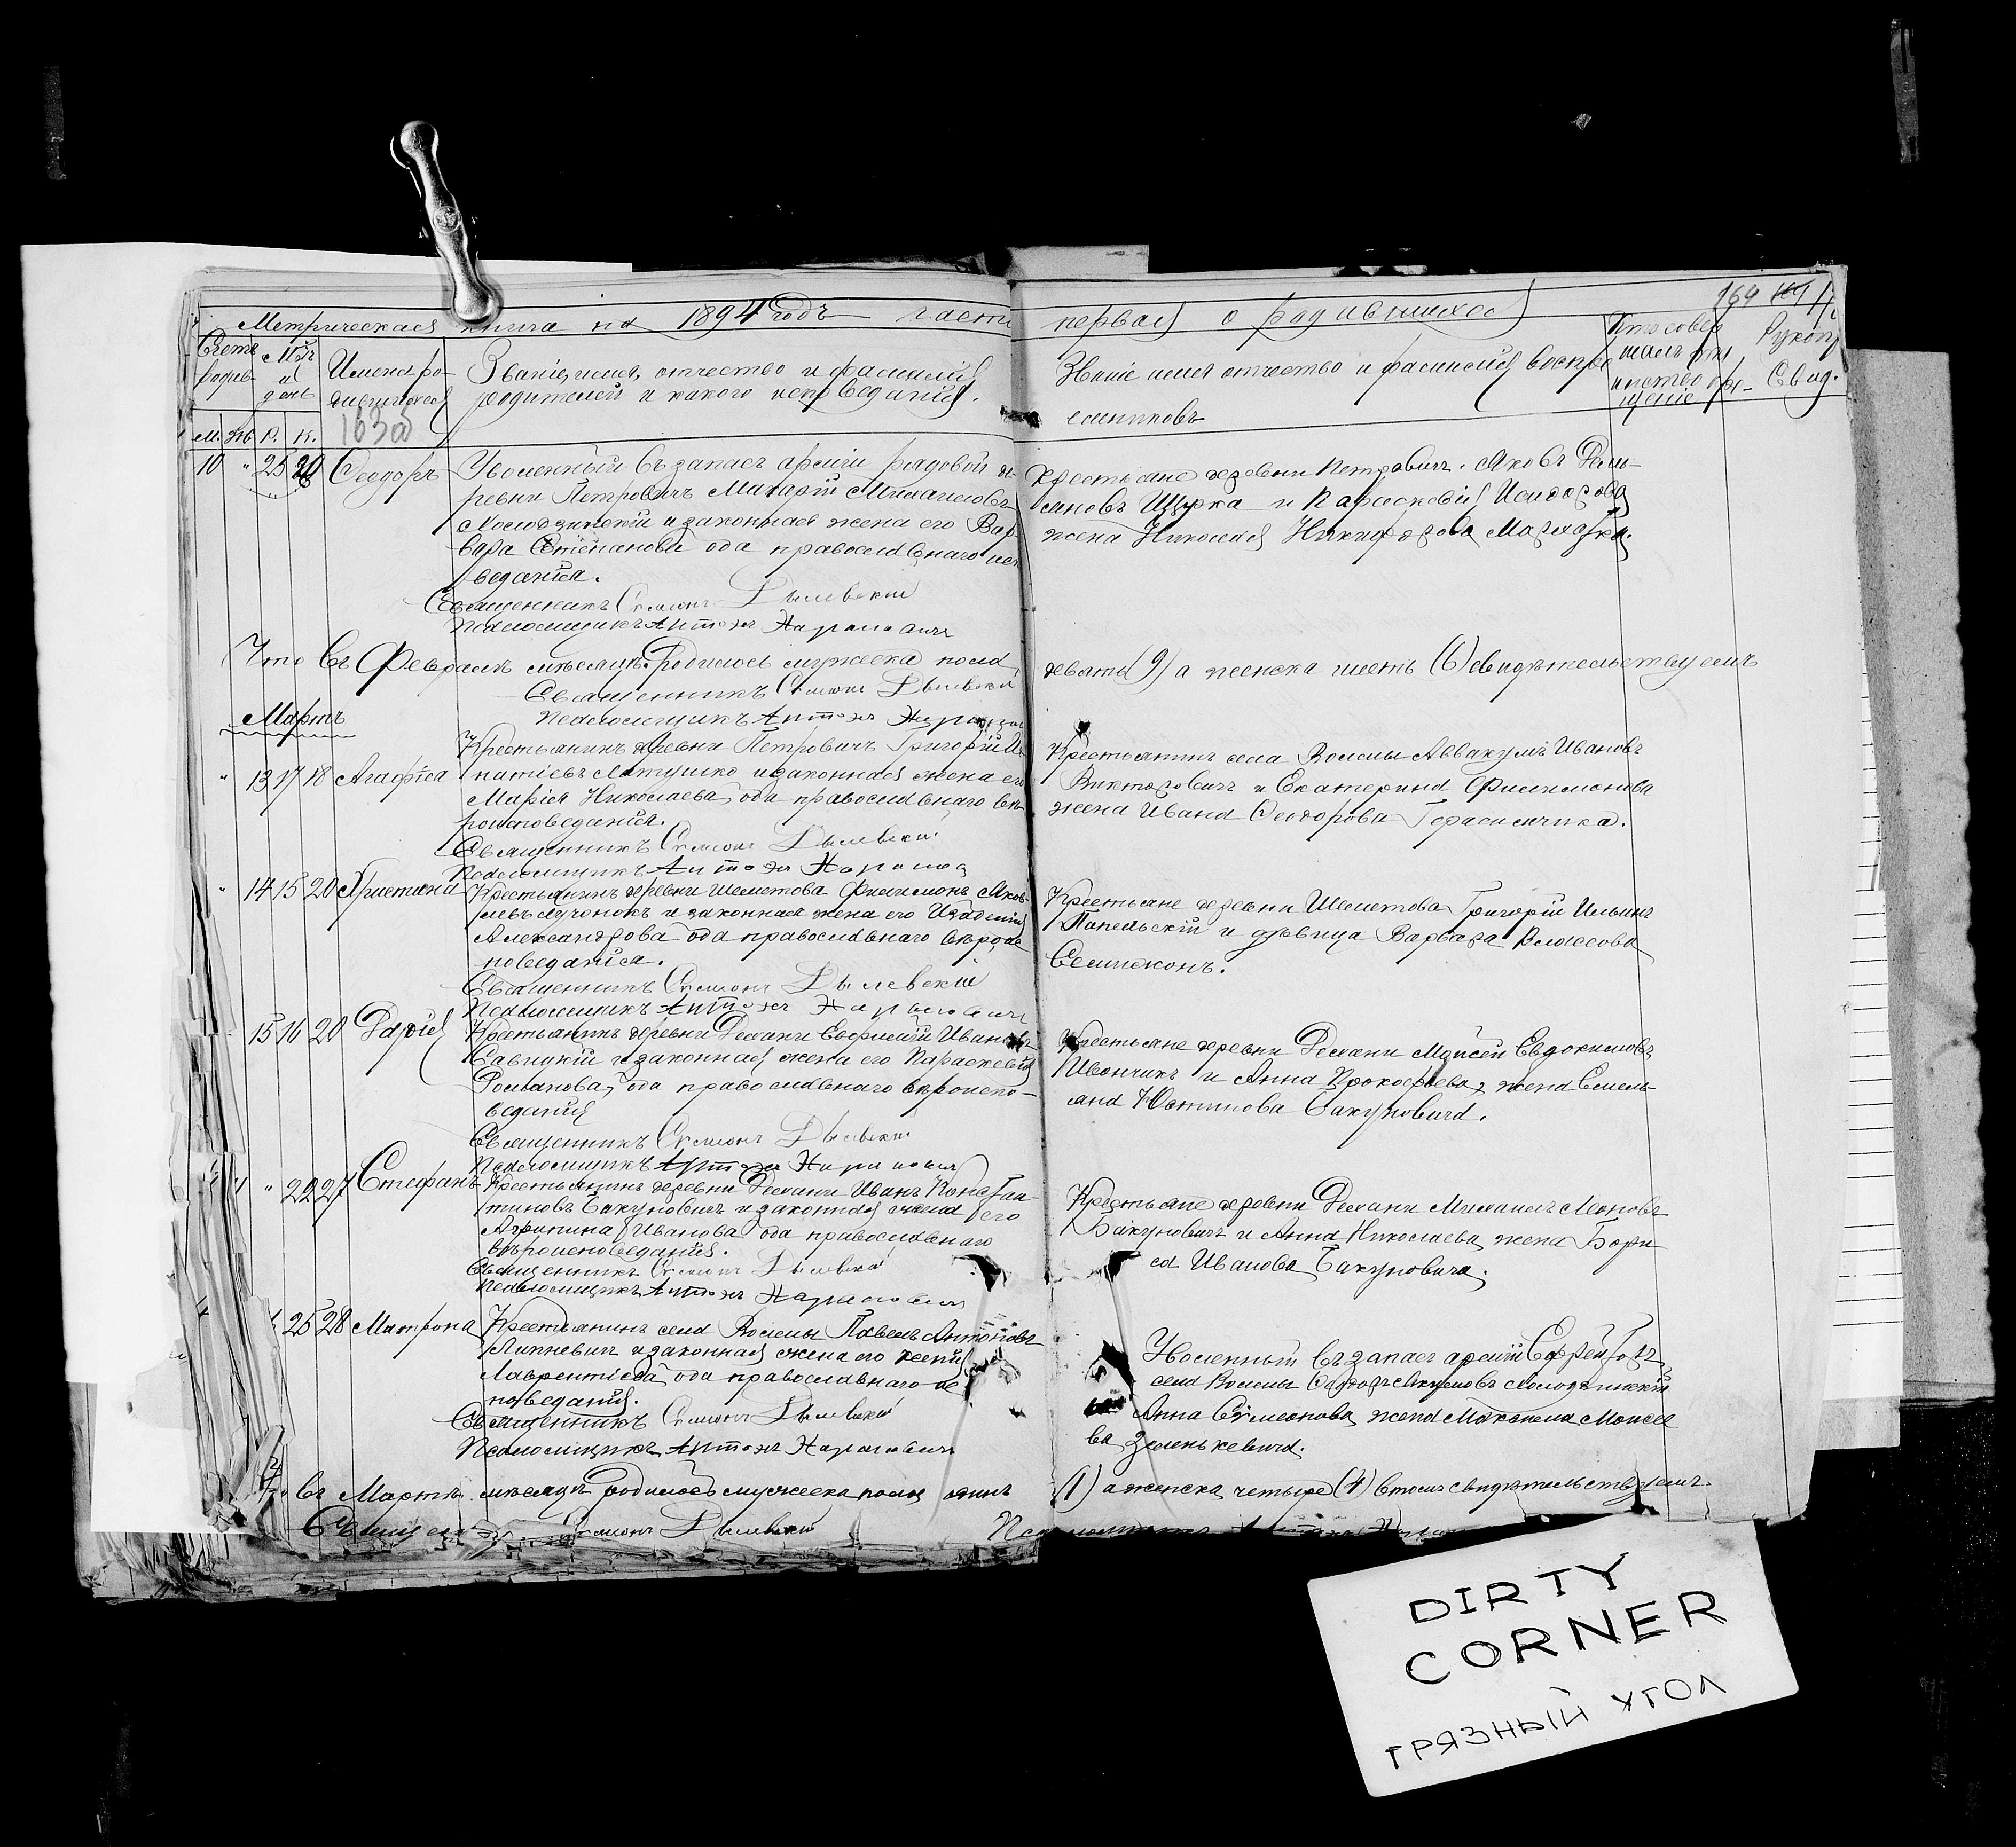 Метрическая книга на 1894 годъ часть первая о родившихся
164
Счетъ родив-
М-цъ и день
Имена ро-
дившихся
Званіе, имя, отчество и фамилія
родителей и какого исповеданія.
Званіе имя отчество и фамилія воспрі
емниковъ
Кто совер
шалъ
щеніе
Рукопр
Свид.
м. ж. Р. К.
163об
10 " 25 Ѳеодоръ
Уволенный въ запасъ арміи рядовой де
ревни Петровичъ Макарій Михаиловъ
Молодзинскій и законная жена его Вар
вара Степанова оба православнаго ис
веданія.
Священникъ Симеонъ Дылевскій
Псаломщикъ Антоній
Крестьяне деревни Петровичъ. Яковъ Дем-
яновъ Щурка и Параскевія Исидорова
жена Николая Никифорова
Что въ Февралѣ мѣсяцѣ родилось мужеска пола
девять (9) а женска шесть (6) свидѣтельствуемъ
Священникъ Симеонъ Дылевскій
Псаломщикъ Антоній
Мартъ
" 13 17 18 Агафія
Крестьянинъ деревни Петровичъ Григорій Иг
натіевъ Латушко и законная жена его
Марія Николаева, оба православнаго вѣ-
роисповеданія.
Священникъ Симеонъ Дылевскій
Псаломщикъ Антоній
Крестьянинъ села Волмы Аввакумъ Ивановъ
Викторовичъ и Екатерина Филимонова
жена Ивана Ѳеодорова Герасимчика.
" 14 15 20 Христина
Крестьянинъ деревни Шеметова Филимонъ Яков-
левъ Лучонокъ и законная жена его
Александрова оба православнаго вѣроис
поведанія.
Священникъ Симеонъ Дылевскій
Псаломщикъ Антоній
Крестьяне деревни Шеметова Григорій Ильинъ
и дѣвица Варвара Власова
15 16 20 Дарія
Крестьянинъ деревни Деханы Евфимій Ивановъ
Савицкій и законная жена его Параскевія
Романова, оба православнаго вѣроиспо-
веданія
Священникъ Симеонъ Дылевскій
Псаломщикъ Антоній
Крестьяне деревни Деханы Моисей Евдокимовъ
Ивончикъ и Анна Прокофьева, жена Емель-
яна Юстинова Бакуновича.
" 22 27 Стефанъ
Крестьянинъ деревни Деханы Иванъ Констан-
тиновъ Бакуновичъ и законная жена его
Агрипина Иванова оба православнаго
вѣроисповеданія.
Священникъ Симеонъ Дылевскій
Псаломщикъ Антоній
Крестьяне деревни Деханы Михаилъ Леоновъ
Бакуновичъ и Анна Николаева, жена Бори-
са Иванова Бакуновича.
25 28 Матрона
Крестьянинъ села Волмы Павелъ Антоновъ
Липневичъ и законная жена его Ксенія
Лаврентіева, оба православнаго ис
поведанія.
Священникъ Симеонъ Дылевскій
Псаломщикъ Антоній
Уволенный въ запасъ арміи Ефрейторъ
села Волмы
Анна Симеонова, жена Моисее
ва Зенькевича.
въ Мартѣ мѣсяцѣ родилось мужеска пола одинъ
(1) а женска четыре (4) в томъ свидѣтельствуемъ.
Симеонъ Дылевскій
DIRTY
CORNER
ГРЯЗНЫЙ УГОЛ